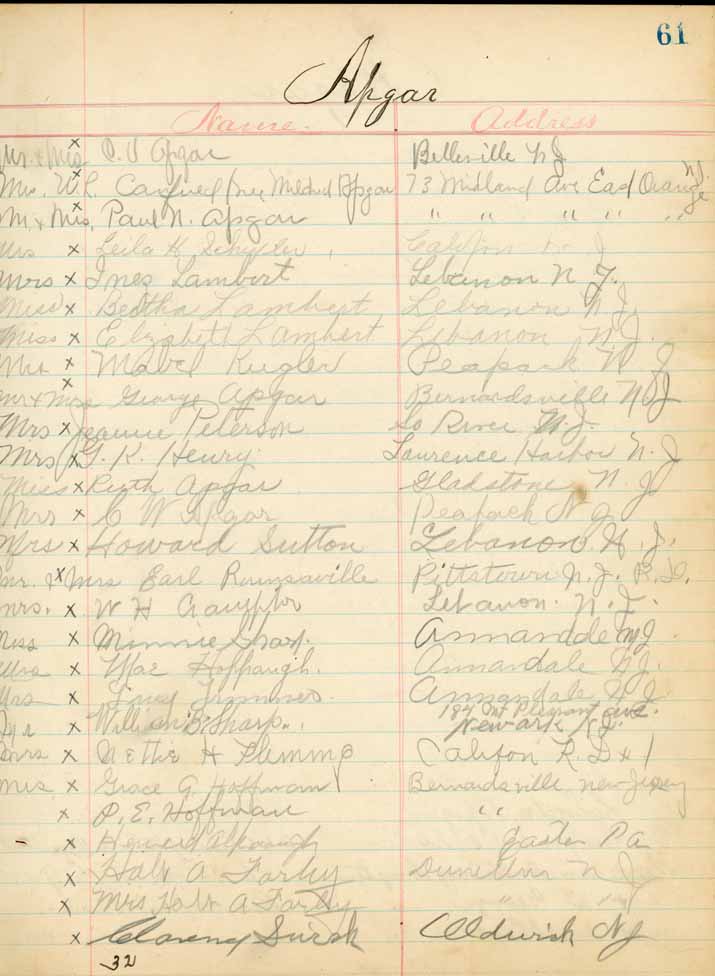 61
Apgar
Name. Address
Mr. & Mrs x C. V Apgar Belleville N J
Mrs. W R Canfield (nee Mildred Apgar 73 Midland Ave East Orange N.J.
Mr & Mrs. x Paul N. Apgar " " " " "
Mrs x Leila H. Schuyler Califon N. J
Mrs x Ines Lambert Lebanon N. J.
Miss x Bertha Lambert Lebanon N. J.
Miss x Elizabeth Lambert Lebanon N. J.
Mrs x Mabel Kugler Peapack N J
Mr & Mrs x George Apgar Bernardsville N J
Mrs x Jeanne Peterson So River N.J.
Mrs x G. K. Henry Laurence Harbor N. J
Miss x Ruth Apgar Gladstone N. J
Mrs x C W Apgar Peapack N J
Mrs x Howard Sutton Lebanon N. J.
Mr. x Mrs Earl Rounsaville Pittstown N. J. R.D.
Mrs. x W H Crampton Lebanon. N. J.
Miss x Minnie Sharp. Annandale N J
Mrs x Mae Hoffaugh. Annandale N J.
Mrs x Trimmer. Annandale N J
x William B. Sharp. 184 Mt Pleasant ave. Newark N.J.
Mrs x Nettie H Fleming Califon R. D # 1
Mrs x Grace G Hoffman Bernardsville New Jersey
x P. E. Hoffman "
x Howard Alpaugh Easton Pa
x Halt A Farley Dunellen N J
x Mrs Halt A Farley " "
x Clarence Oldwick NJ
32